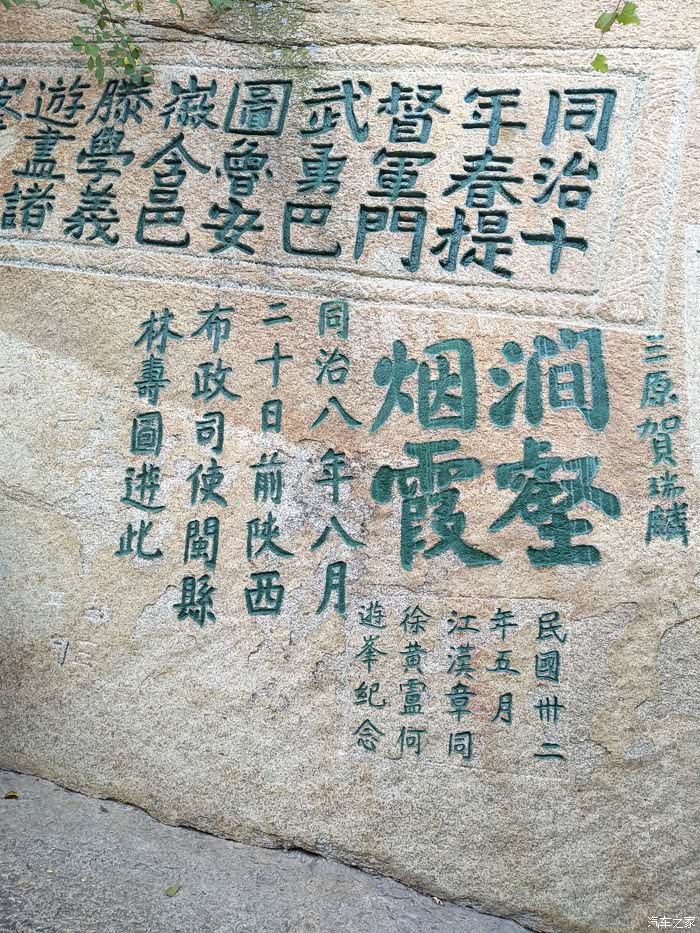 同治十
年春提
督軍門
武勇巴
圖魯安
徽含邑
滕學義
遊盡諸
三原賀瑞麟
澗壑
烟霞
同治八年八月
二十日前陝西
布政司使閩縣
林壽圖遊此
民國卅二
年五月
江漢章同
徐黄盧何
遊峯紀念
汽车之家